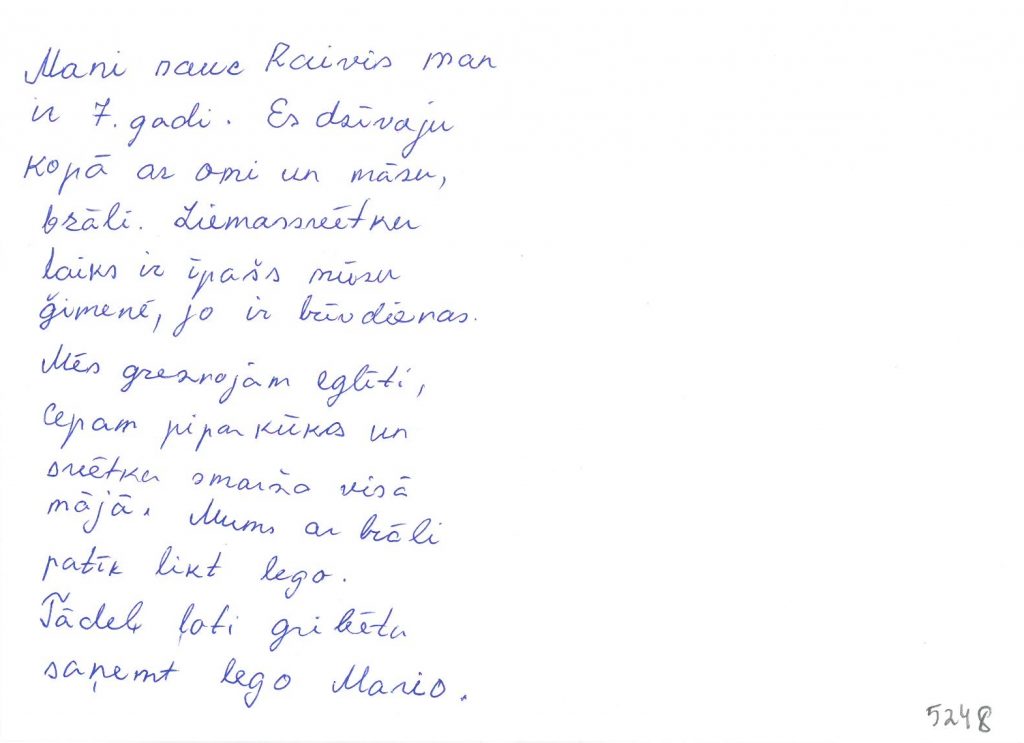 Mani sauc Raivis man
ir 7. gadi. Es dzīvaju
kopā ar omi un māsu,
brāli. Ziemassvētku
laiks ir īpašs mūsu
ģimenē, jo ir brīvdienas.
Mēs greznojam eglīti,
cepam piparkūkas un
svētku smarža visā
mājā. Mums ar brāli
patīk likt lego.
Tādeļ ļoti gribētu
saņemt lego Mario.
5248